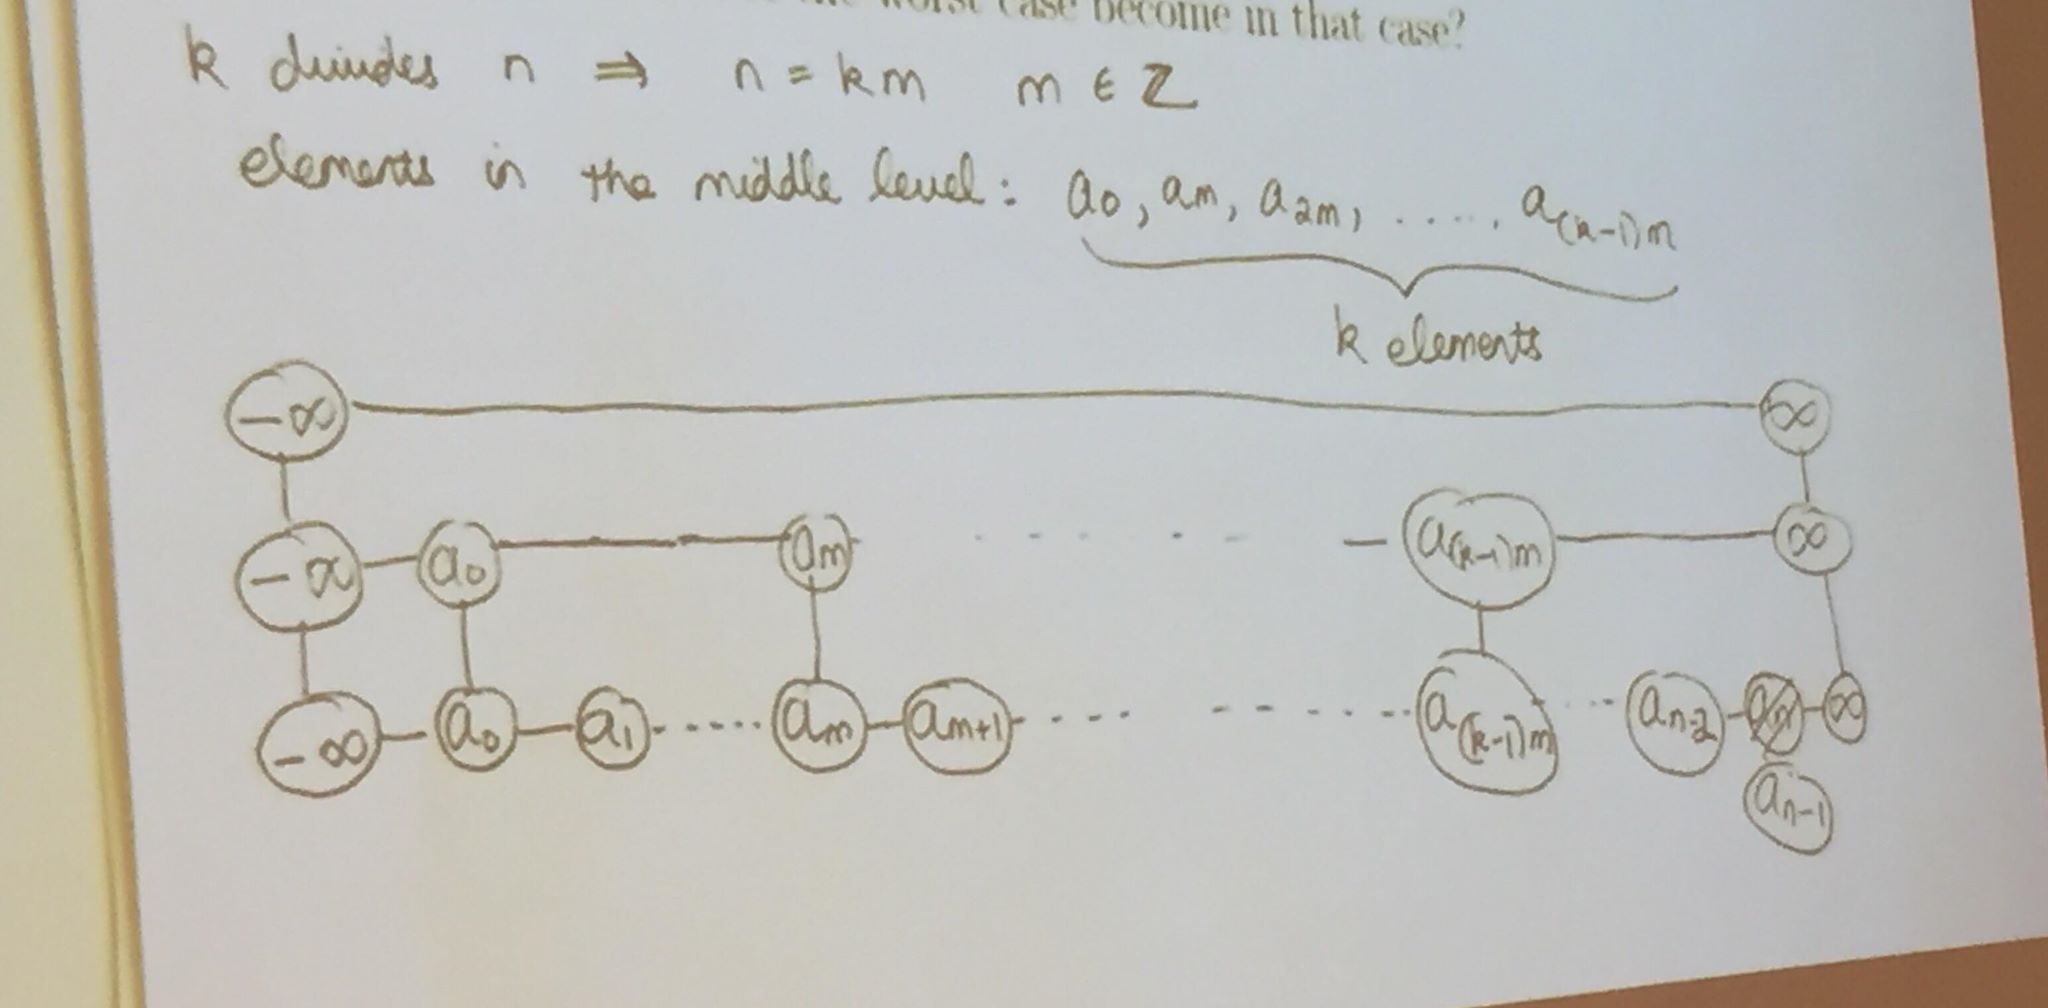 worst case become in that case?
k divides n ⇒ n = km m ∈ ℤ
elements in the middle level: a₀, aₘ, a₂ₘ, ....., a₍ₖ₋₁₎ₘ
k elements
-∞ ∞
-∞ a₀ aₘ .... a₍ₖ₋₁₎ₘ ∞
-∞ a₀ a₁ .... aₘ aₘ₊₁ .... .... a₍ₖ₋₁₎ₘ .... aₙ₋₂ ∞
aₙ₋₁